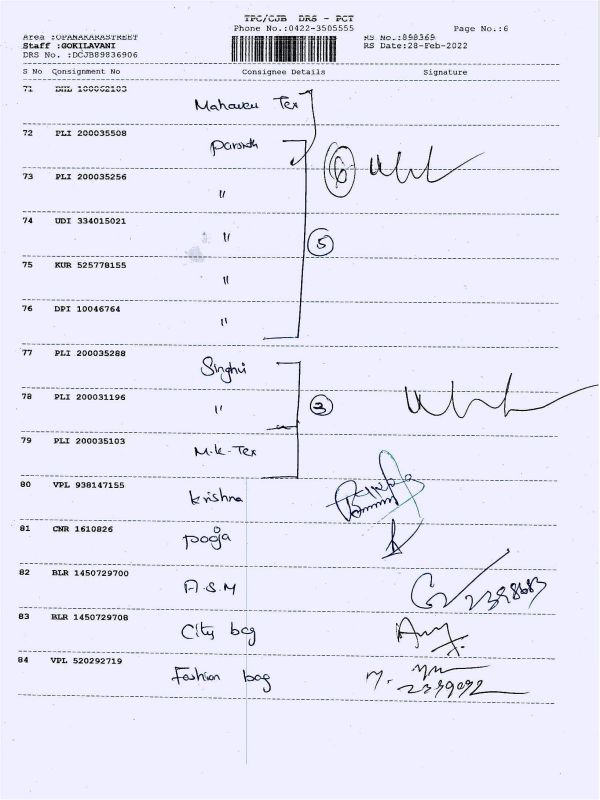 TPC/CJB DRS - PCT
Area :UPANAKARASTREET Phone No.:0422-3505555 Page No.:6
Staff :GOKILAVANI RS No.:898369
DRS No. :DCJB89836906 RS Date:28-Feb-2022
S No Consignment No Consignee Details Signature
71 DHL 100062103 Mahaveer Tex
72 PLI 200035508 Parsvath
6
73 PLI 200035256 "
74 UDI 334015021 " 5
75 KUR 525778155 "
76 DPI 10046764 "
77 PLI 200035288 Singhvi
78 PLI 200031196 " 3
79 PLI 200035103 M.K. Tex
80 VPL 938147155 Krishna
81 CNR 1610826 Pooja
82 BLR 1450729700 A.S.M
83 BLR 1450729708 City bag
84 VPL 520292719 Fashion bag
2339092